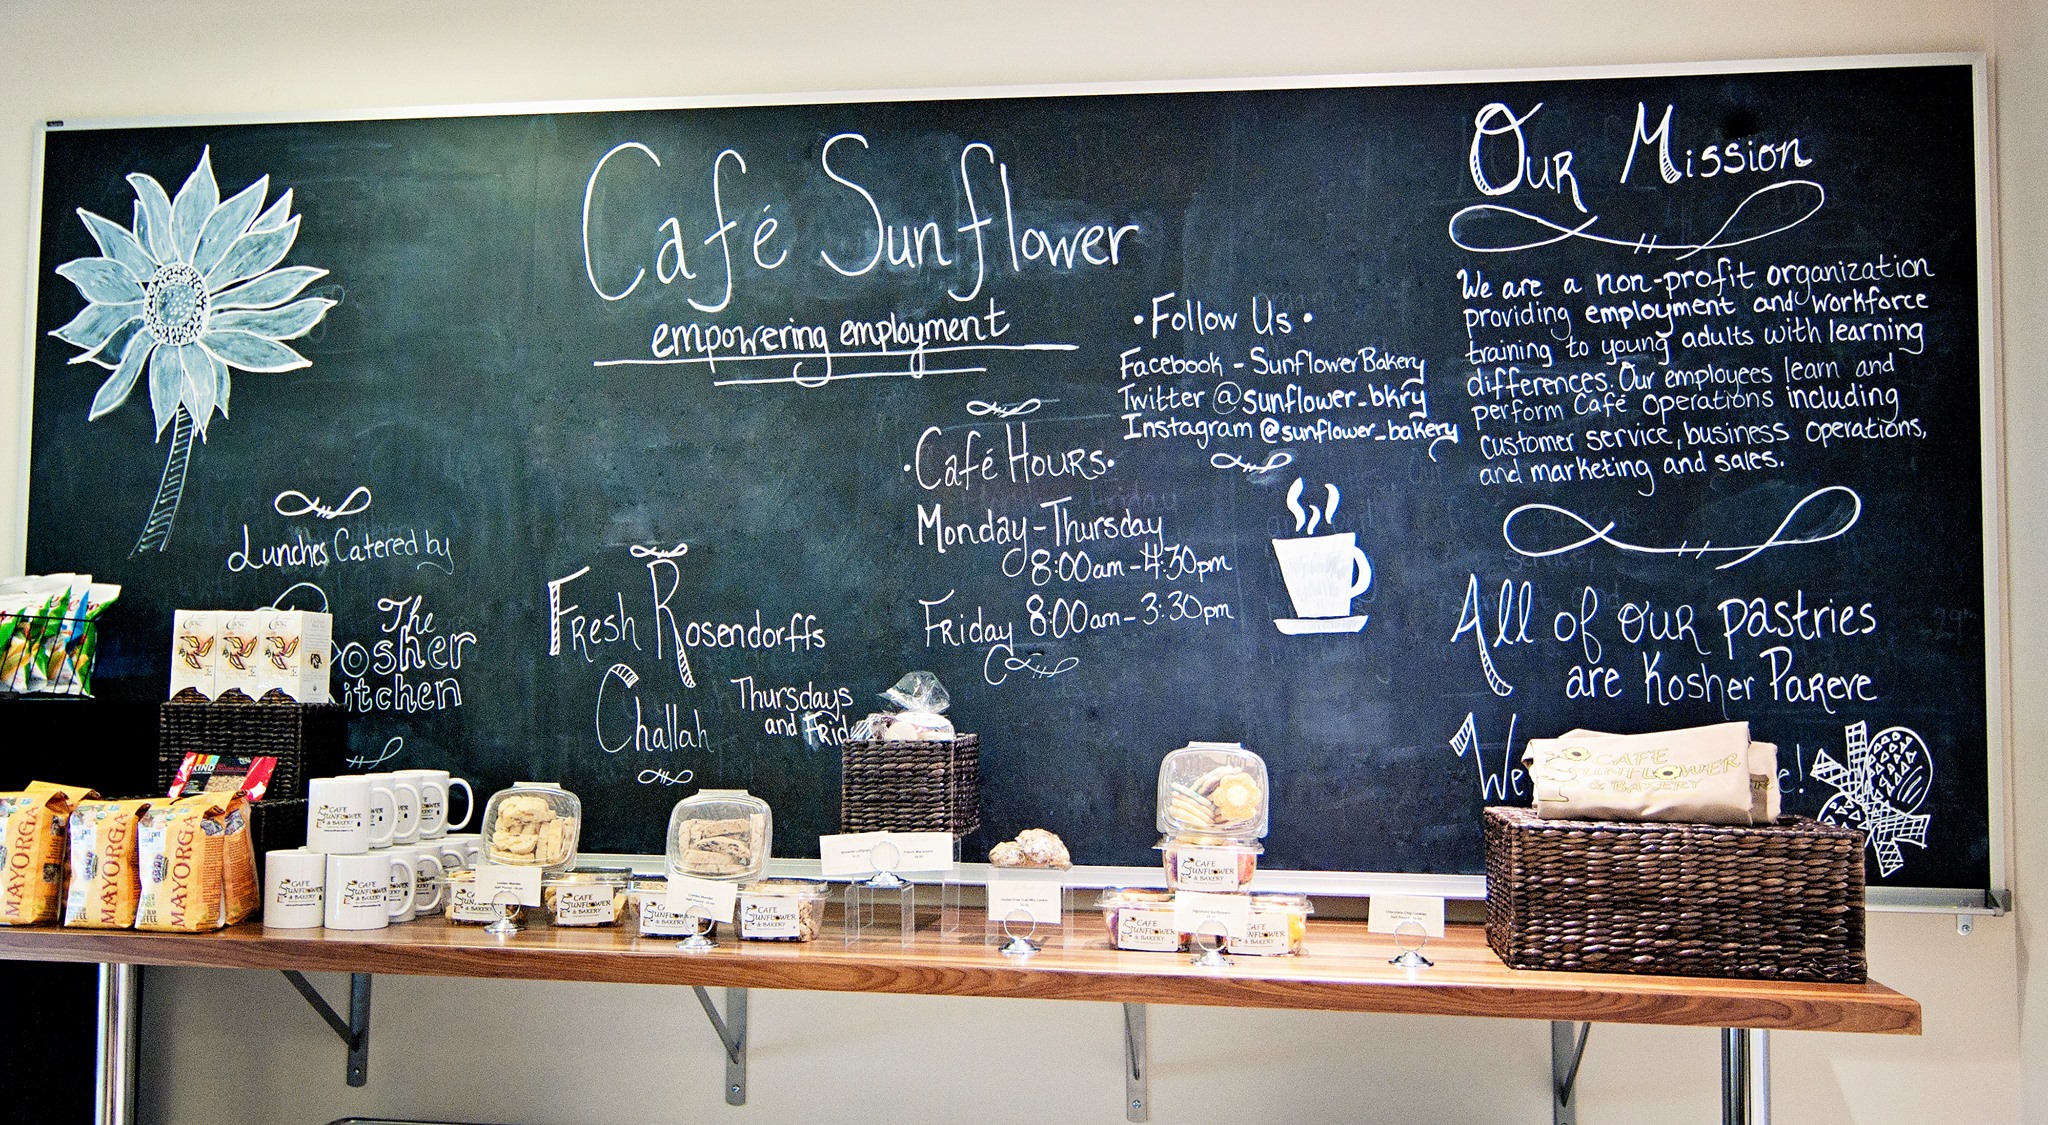 Café Sunflower
empowering employment
Lunches Catered by
The
osher
itchen
Fresh Rosendorffs
Challah
Thursdays
and Frid
• Café Hours •
Monday - Thursday
8:00am - 4:30pm
Friday 8:00am - 3:30pm
• Follow Us •
Facebook - SunflowerBakery
Twitter @sunflower_bkry
Instagram @sunflower_bakery
Our Mission
We are a non-profit organization
providing employment and workforce
training to young adults with learning
differences. Our employees learn and
perform Café Operations including
customer service, business operations,
and marketing and sales.
All of our pastries
are Kosher Pareve
We
e!
KIND
MAYORGA
MAYORGA
MAYORGA
CAFE
SUNFLOWER
& BAKERY
CAFE
SUNFLOWER
& BAKERY
CAFE
SUNFLOWER
& BAKERY
CAFE
SUNFLOWER
& BAKERY
CAFE
SUNFLOWER
& BAKERY
CAFE
SUNFLOWER
& BAKERY
CAFE
SUNFLOWER
& BAKERY
CAFE
SUNFLOWER
& BAKERY